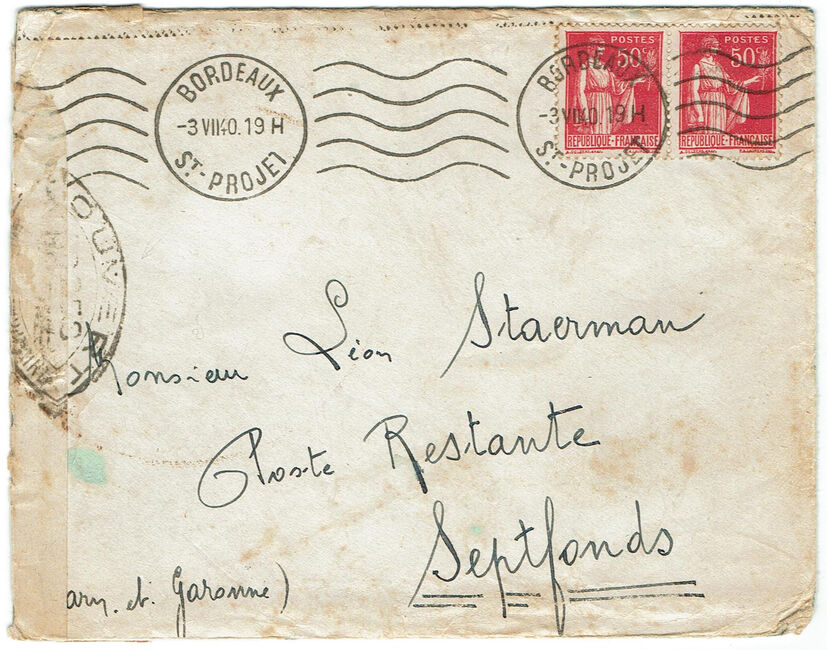 BORDEAUX
-3 VII40. 19 H
ST-PROJET
BORDEAUX
-3 VII40. 19 H
ST-PROJET
POSTES
50c
RÉPUBLIQUE-FRANÇAISE
POSTES
50c
RÉPUBLIQUE-FRANÇAISE
OUVERT
Monsieur Léon Staerman
Poste Restante
Septfonds
arn. et. Garonne)